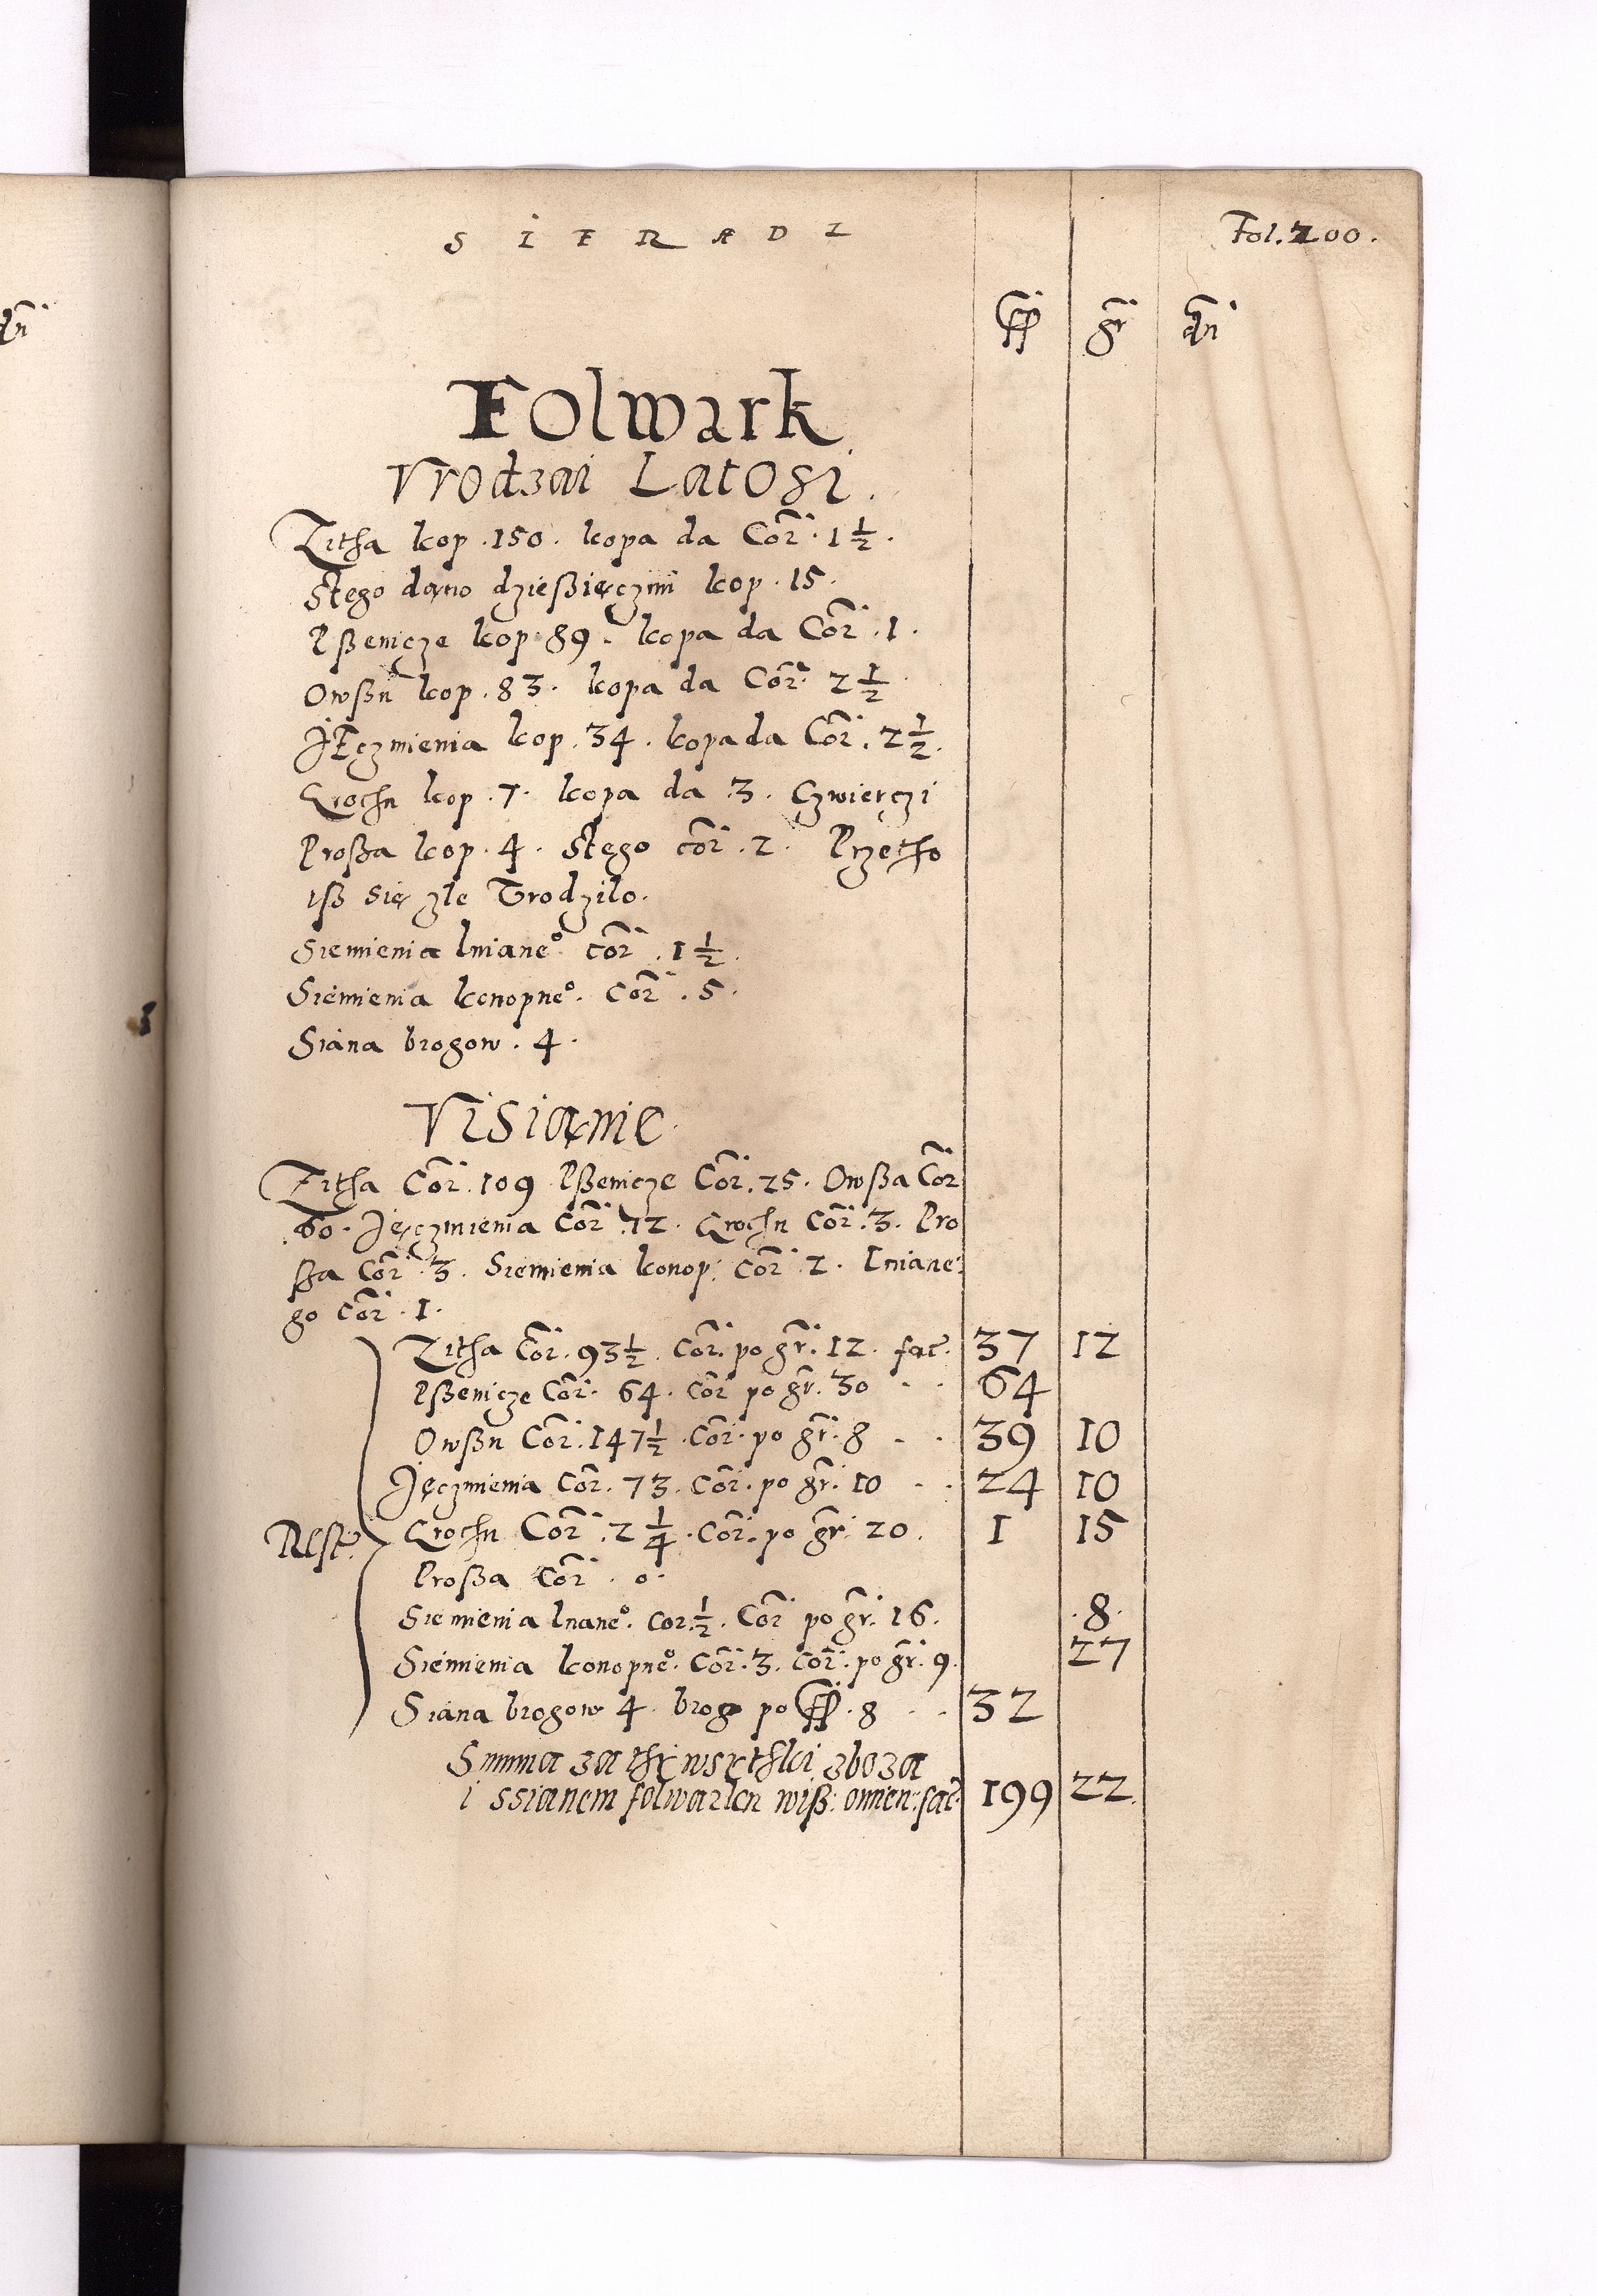 SIERADZ
Fol. 200.
ff gr dn
Folwark
Vrodzai Latosi.
Zitha kop .150. kopa da Cor. 1 1/2.
Stego dano dzießięczini kop. 15.
Pßenicze kop. 89. kopa da Cor. 1.
Owßu kop. 83. kopa da Cor. 2 1/2
Jęczmienia kop. 34. kopa da Cor. 2 1/2.
Grochu kop. 7. kopa da 3. Czwierczi
Proßa kop. 4. Stego cor. 2. Przetho
iß się zle Vrodzilo.
Siemienia lniane° cor. 1 1/2.
Siemienia konopne°. Cor. 5.
Siana brogow. 4.
Visianie
Zitha Cor. 109 Pßenicze Cor. 25. Owßa Cor
60. Jęczmienia Cor 12. Grochu Cor. 3. Pro
ßa Cor. 3. Siemienia konop: Cor 2. Lniane:
go Cor. 1.
Zitha Cor. 93 1/2. Cor. po gr. 12. fac. 37 12
Pßenicze Cor. 64. Cor po gr. 30 64
Owßu Cor. 147 1/2. Cor. po gr. 8 39 10
Jęczmienia Cor. 73. Cor. po gr. 10 24 10
Rest: Grochu Cor. 2 1/4. Cor. po gr. 20. 1 15
Proßa Cor. 0.
Siemienia lnane°. cor. 1/2. Cor po gr. 16. .8.
Siemienia konopne°. Cor. 3. Cor. po gr. 9. 27
Siana brogow 4. brog po ff. 8 32
Summa za thi wsythki zboza
i ssianem folwarku wiß: omien: fac. 199 22.